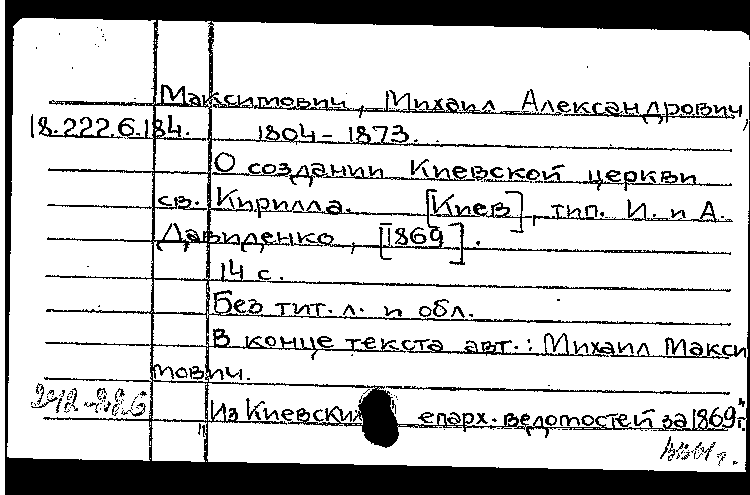 Максимович, Михаил Александрович,
18.222.6.184. 1804-1873.
О создании Киевской церкви
св. Кирилла. [Киев], тип. И. и А.
Давиденко, [1869].
14 с.
Без тит. л. и обл.
В конце текста авт.: Михаил Макси
мович.
Из Киевских епарх. ведомостей за 1869 г.